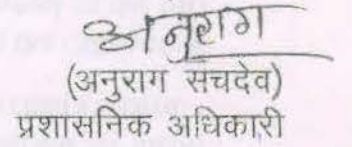 अनुराग
(अनुराग सचदेव)
प्रशासनिक अधिकारी